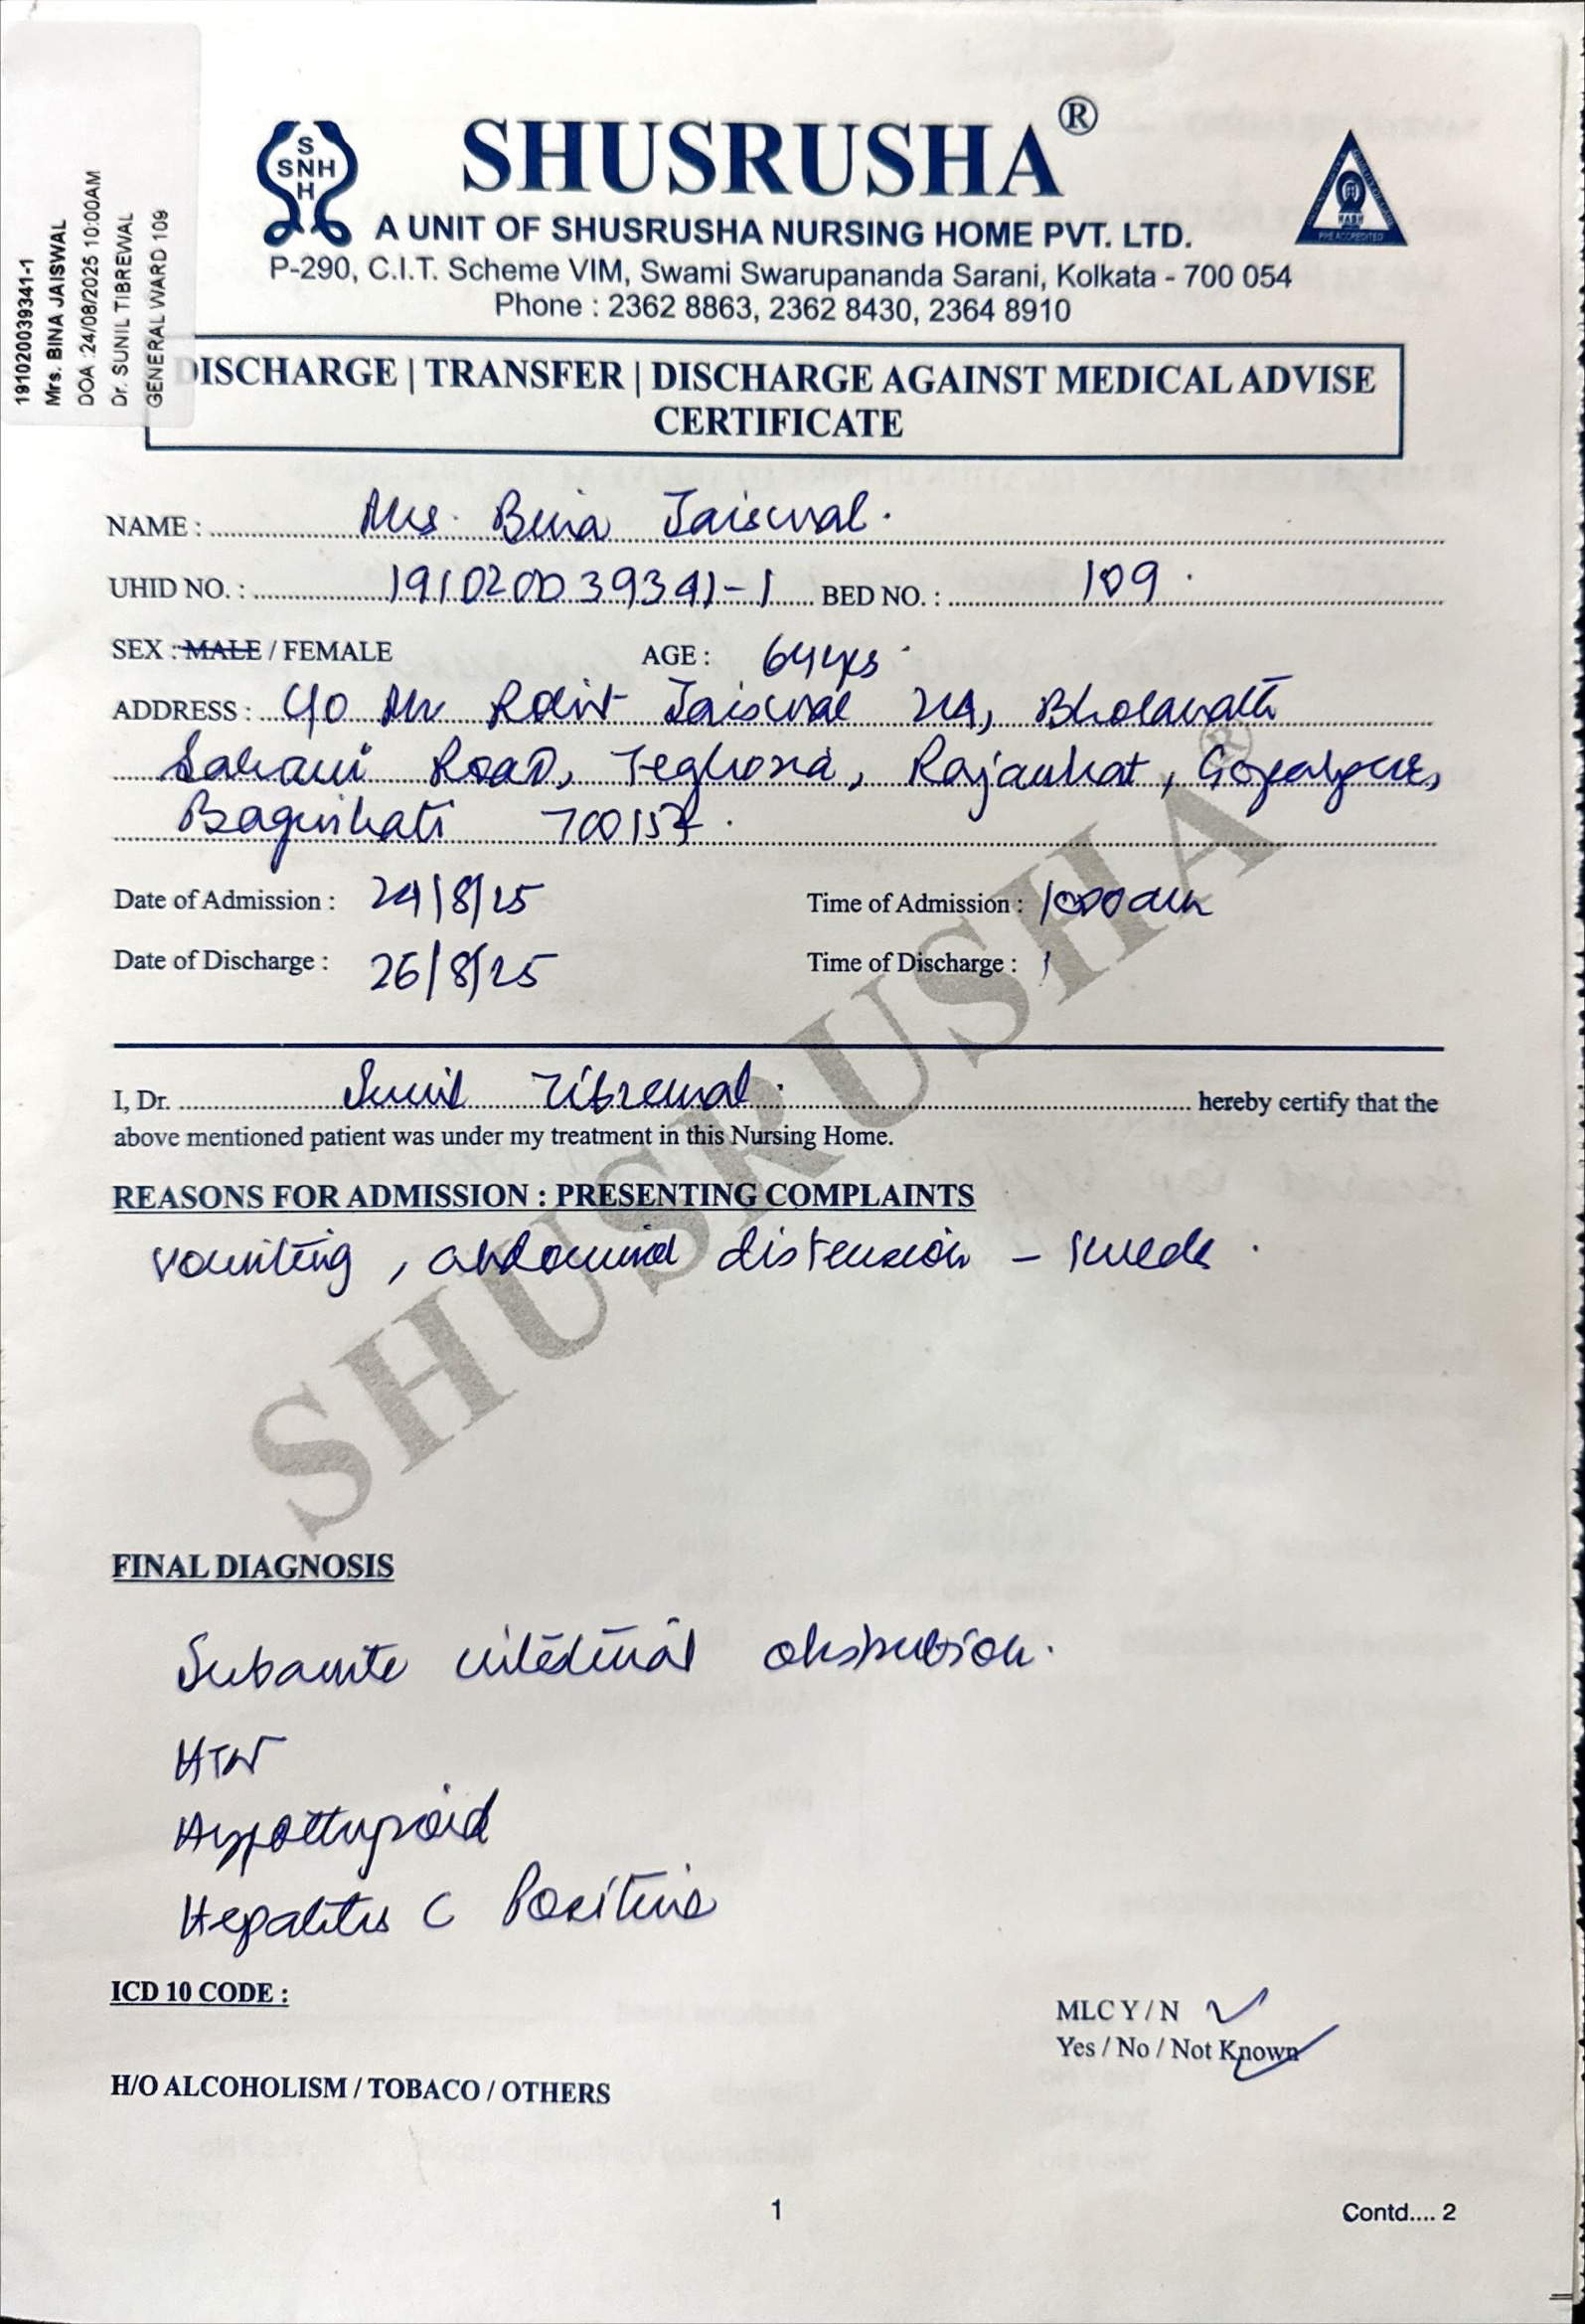 191020039341-1
Mrs. BINA JAISWAL
DOA :24/08/2025 10:00AM
Dr. SUNIL TIBREWAL
GENERAL WARD 109
SNH
S
H
SHUSRUSHA®
A UNIT OF SHUSRUSHA NURSING HOME PVT. LTD.
P-290, C.I.T. Scheme VIM, Swami Swarupananda Sarani, Kolkata - 700 054
Phone : 2362 8863, 2362 8430, 2364 8910
PRE ACCREDITED
DISCHARGE | TRANSFER | DISCHARGE AGAINST MEDICAL ADVISE
CERTIFICATE
NAME : Mrs. Bina Jaiswal.
UHID NO. : 191020039341-1 BED NO. : 109.
SEX : MALE / FEMALE AGE : 64yrs.
ADDRESS : C/o Mr Rohit Jaiswal Bholanath
Sahani Road, Teghoria, Rajarhat, Gopalpur,
Baguihati 700157.
Date of Admission : 24/8/25 Time of Admission : 1000am
Date of Discharge : 26/8/25 Time of Discharge :
I, Dr. Sunil Tibrewal. hereby certify that the
above mentioned patient was under my treatment in this Nursing Home.
REASONS FOR ADMISSION : PRESENTING COMPLAINTS
Vomiting, abdominal distension -
SHUSRUSHA®
FINAL DIAGNOSIS
Subacute intestinal obstruction.
HTN
Hypothyroid
Hepatitis C Positive
ICD 10 CODE :
MLC Y / N
Yes / No / Not Known
H/O ALCOHOLISM / TOBACO / OTHERS
1
Contd.... 2